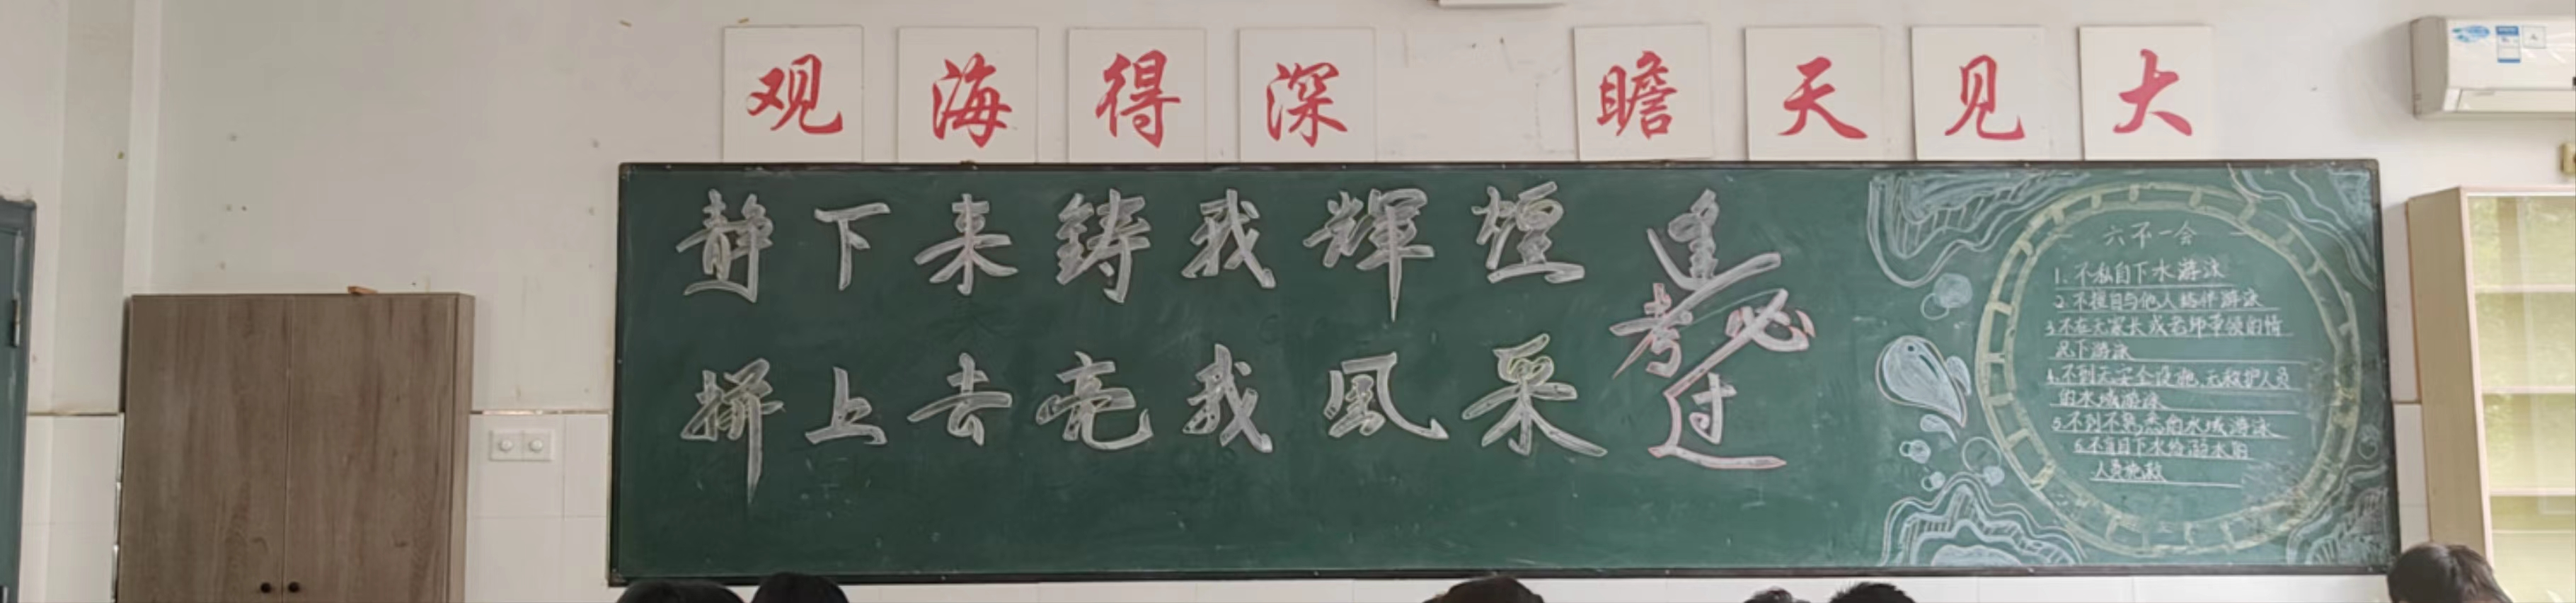 观海得深 瞻天见大
静下来鋳我輝煌
拼上去亮我風采
逢考必过
六不一会
1.不私自下水游泳
2.不擅自与他人结伴游泳
3.不在无家长或老师带领的情
况下游泳
4.不到无安全设施、无救护人员
的水域游泳
5.不到不熟悉的水域游泳
6.不盲目下水给溺水的
人员施救